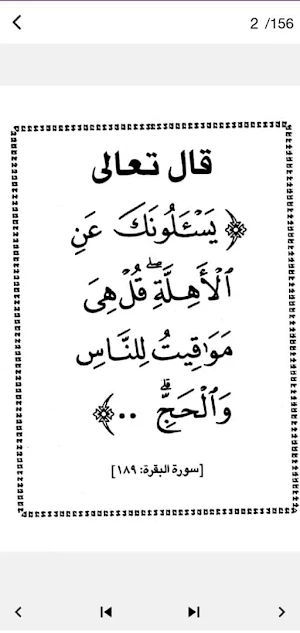 2 /156
قال تعالى
﴿ يَسْـَٔلُونَكَ عَنِ
ٱلْأَهِلَّةِ ۖ قُلْ هِىَ
مَوَٰقِيتُ لِلنَّاسِ
وَٱلْحَجِّ ۗ .. ﴾
[سورة البقرة: ١٨٩]